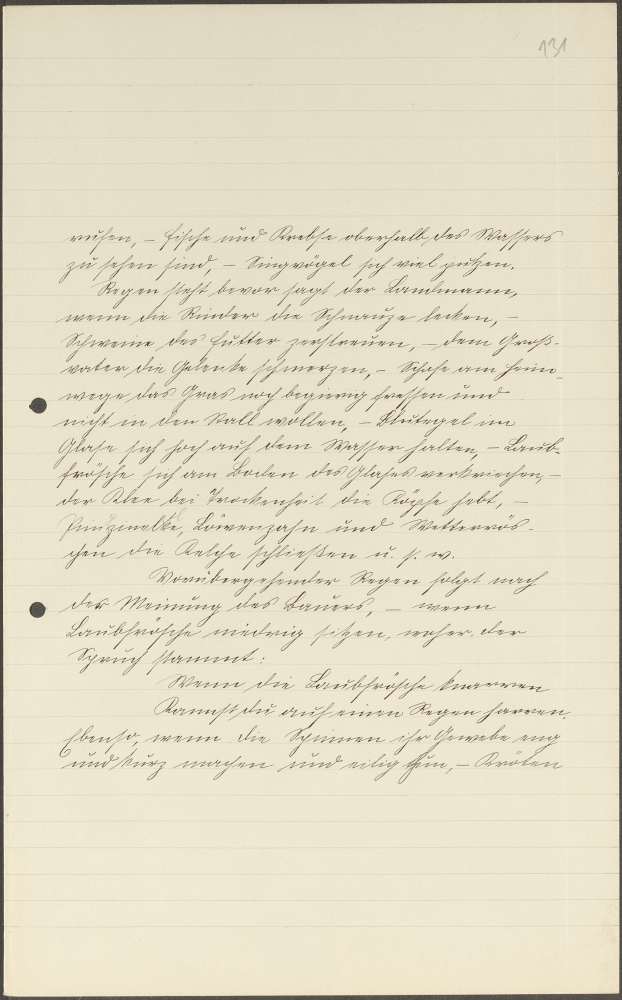 131
rufen, – Fische und Krebse oberhalb des Wassers
zu sehen sind, – Singvögel sich viel putzen.
Regen steht bevor sagt der Landmann,
wenn die Rinder die Schnauze lecken, –
Schweine das Futter zerstreuen, – dem Groß-
vater die Gelenke schmerzen, – Schafe am Heim-
wege das Gras noch begierig fressen und
nicht in den Stall wollen, – Blutegel im
Glase sich hoch auf dem Wasser halten, – Laub-
frösche sich am Boden des Glases verkriechen, –
der Klee bei Trockenheit die Köpfe hebt, –
Löwenzahn und Wetterrös-
chen die Kelche schließen u. s. w.
Vorübergehender Regen folgt nach
der Meinung des Bauers, – wenn
Laubfrösche niedrig sitzen, woher der
Spruch stammt:
Wenn die Laubfrösche knarren
Kannst du auf einen Regen harren.
Ebenso, wenn die Spinnen ihr Gewebe eng
und kurz machen und eilig tun, – Kröten